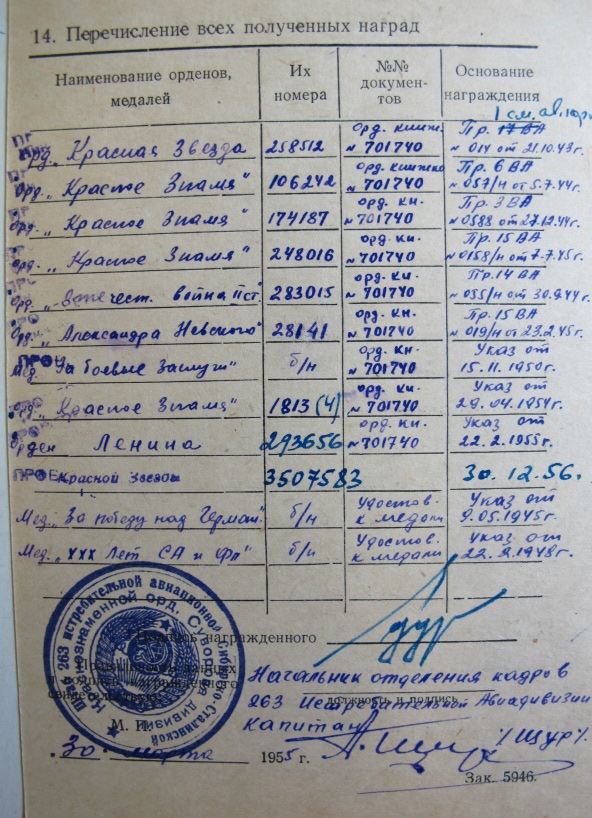 14. Перечисление всех полученных наград
Наименование орденов, медалей
Их номера
№№ документов
Основание награждения
Орд. „Красная Звезда 258512 орд. книжк. № 701740 Пр. 17 ВА № 014 от 21.10.43г.
Орд. „Красное Знамя" 106242 орд. книжка № 701740 Пр. 6 ВА № 057/н от 5.7.44г.
Орд. „Красное Знамя" 174187 орд. кн. № 701740 Пр. 3 ВА № 0588 от 27.12.44г.
Орд. „Красное Знамя" 248016 орд. кн. № 701740 Пр. 15 ВА № 0158/н от 7.7.45г.
Орд. „Отечест. война II ст." 283015 орд. кн. № 701740 Пр. 14 ВА № 055/н от 30.9.44г.
Орд. „Александра Невского" 28141 орд. кн. № 701740 Пр. 15 ВА № 019/н от 23.2.45г.
Мед. „За боевые Заслуги" б/н орд. кн. № 701740 Указ от 15.11.1950г.
Орд. „Красное Знамя" 1813 (4) орд. кн. № 701740 Указ от 29.04.1954г.
Орден Ленина 293656 орд. кн. № 701740 Указ от 22.2.1955г.
Красной Звезды 3507583 30.12.56.
Мед. „За победу над Герман." б/н Удостов. к медали Указ от 9.05.1945г.
Мед. „XXX Лет СА и Фл" б/н Удостов. к медали Указ от 22.2.1948г.
Подпись награжденного
Начальник отделения кадров
263 Истребительной Авиадивизии
должность и подпись
капитан
/Щур/.
М. П.
„30" марта 1955 г.
Зак. 5946.